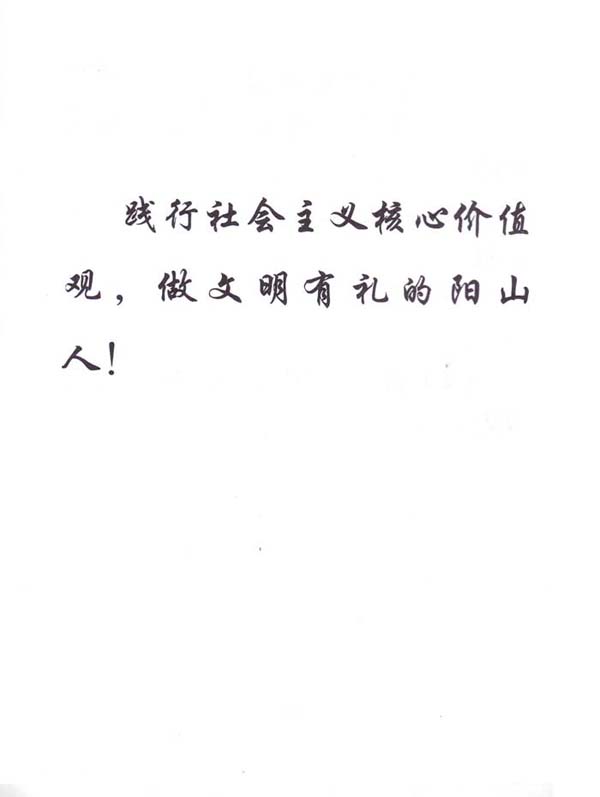 践行社会主义核心价值
观，做文明有礼的阳山
人！